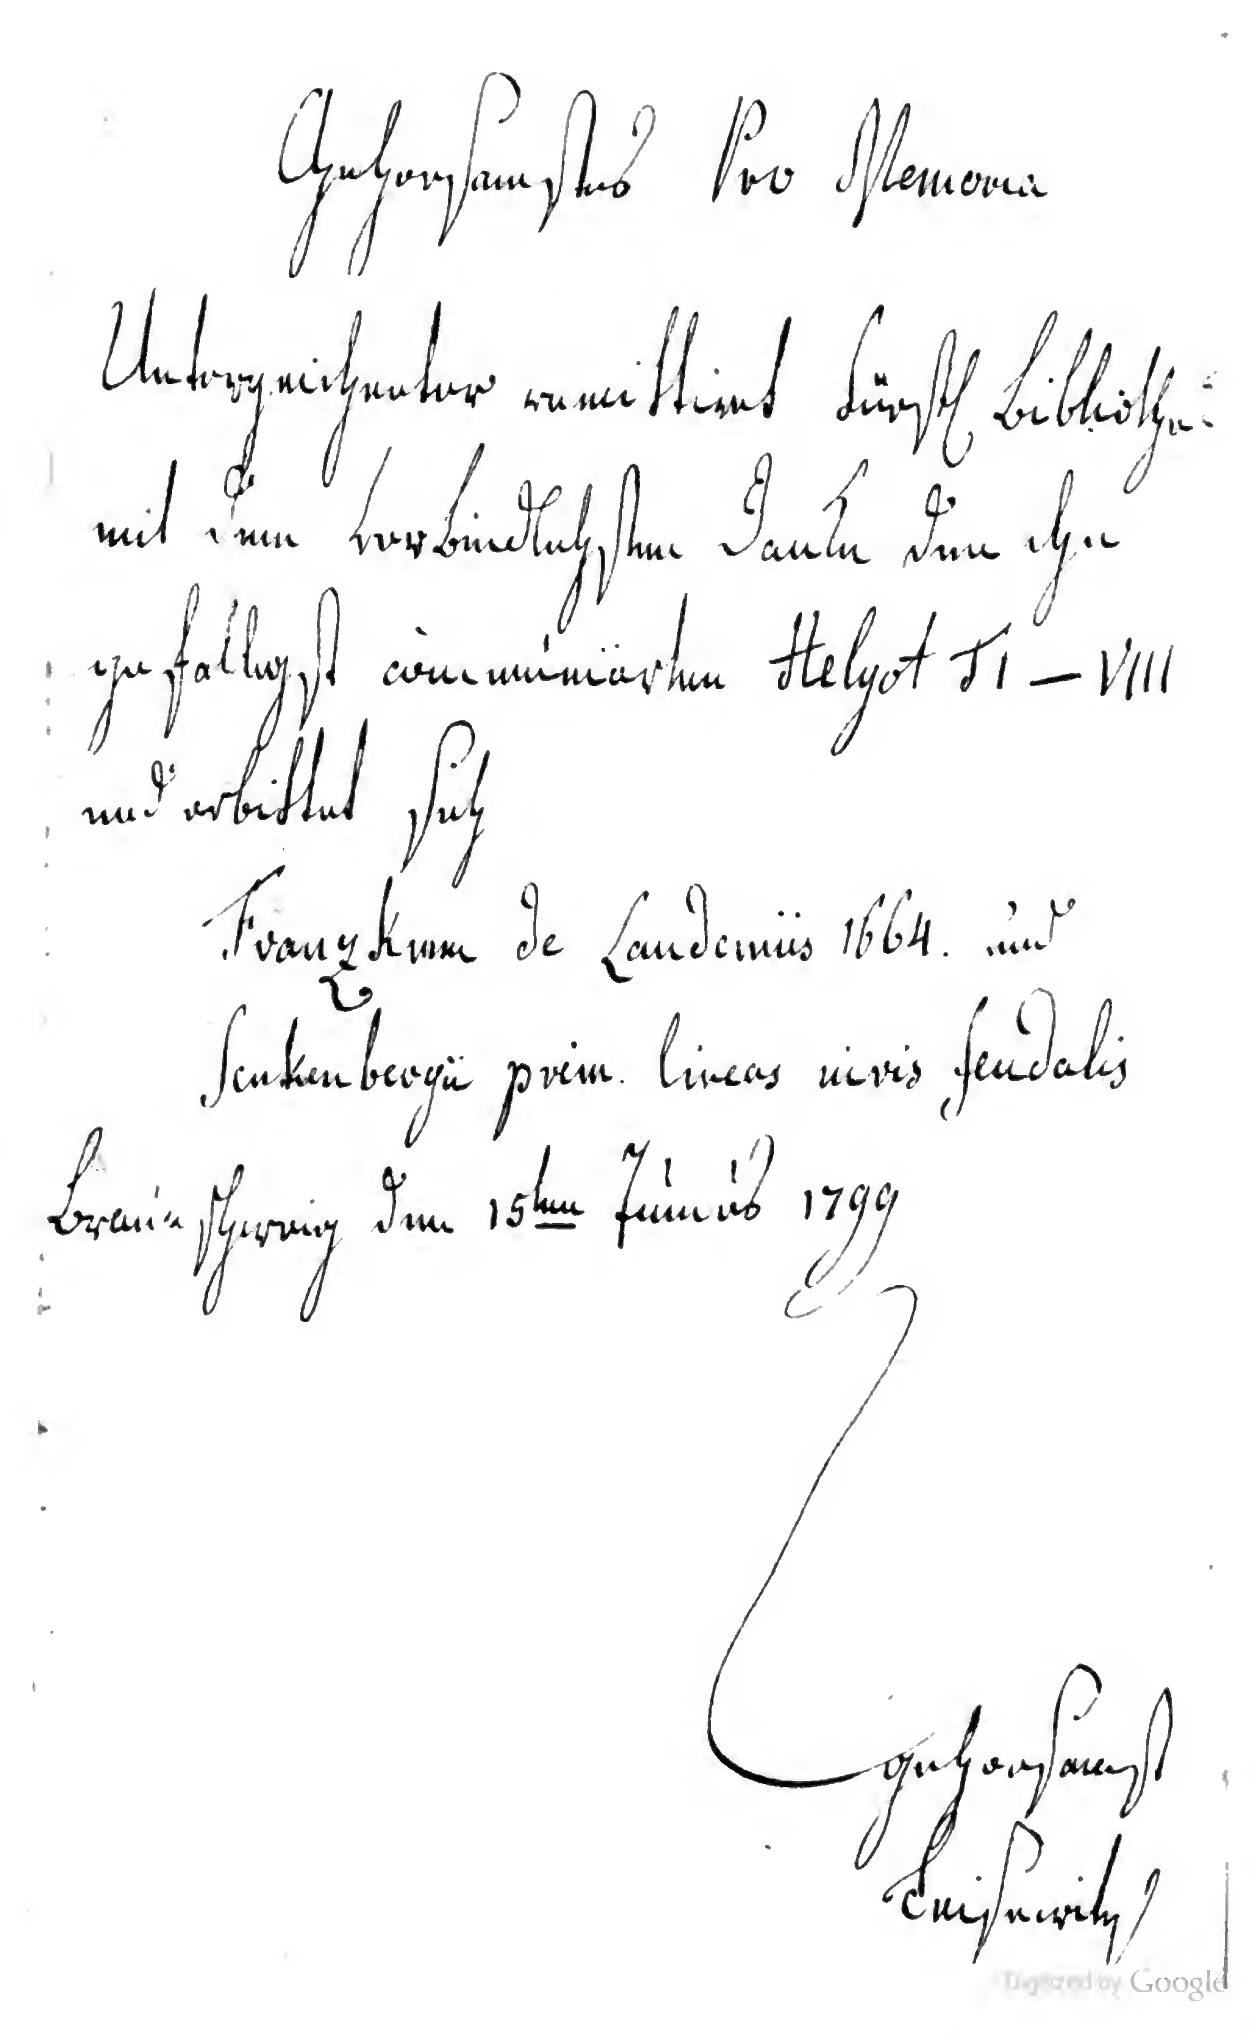 Gehorsamstes Pro Memoria
Unterzeichneter remittirt Fürstl Bibliothec
mit dem verbindlichsten Danke den ihm
gefälligst communicirten Helyot T I – VIII
und erbittet sich
Franzkium de Laudemiis 1664. und
Senkenbergii prim. lineas iuris feudalis
Braunschweig den 15ten Junius 1799
gehorsamst
Leisewitz
Digitized by Google